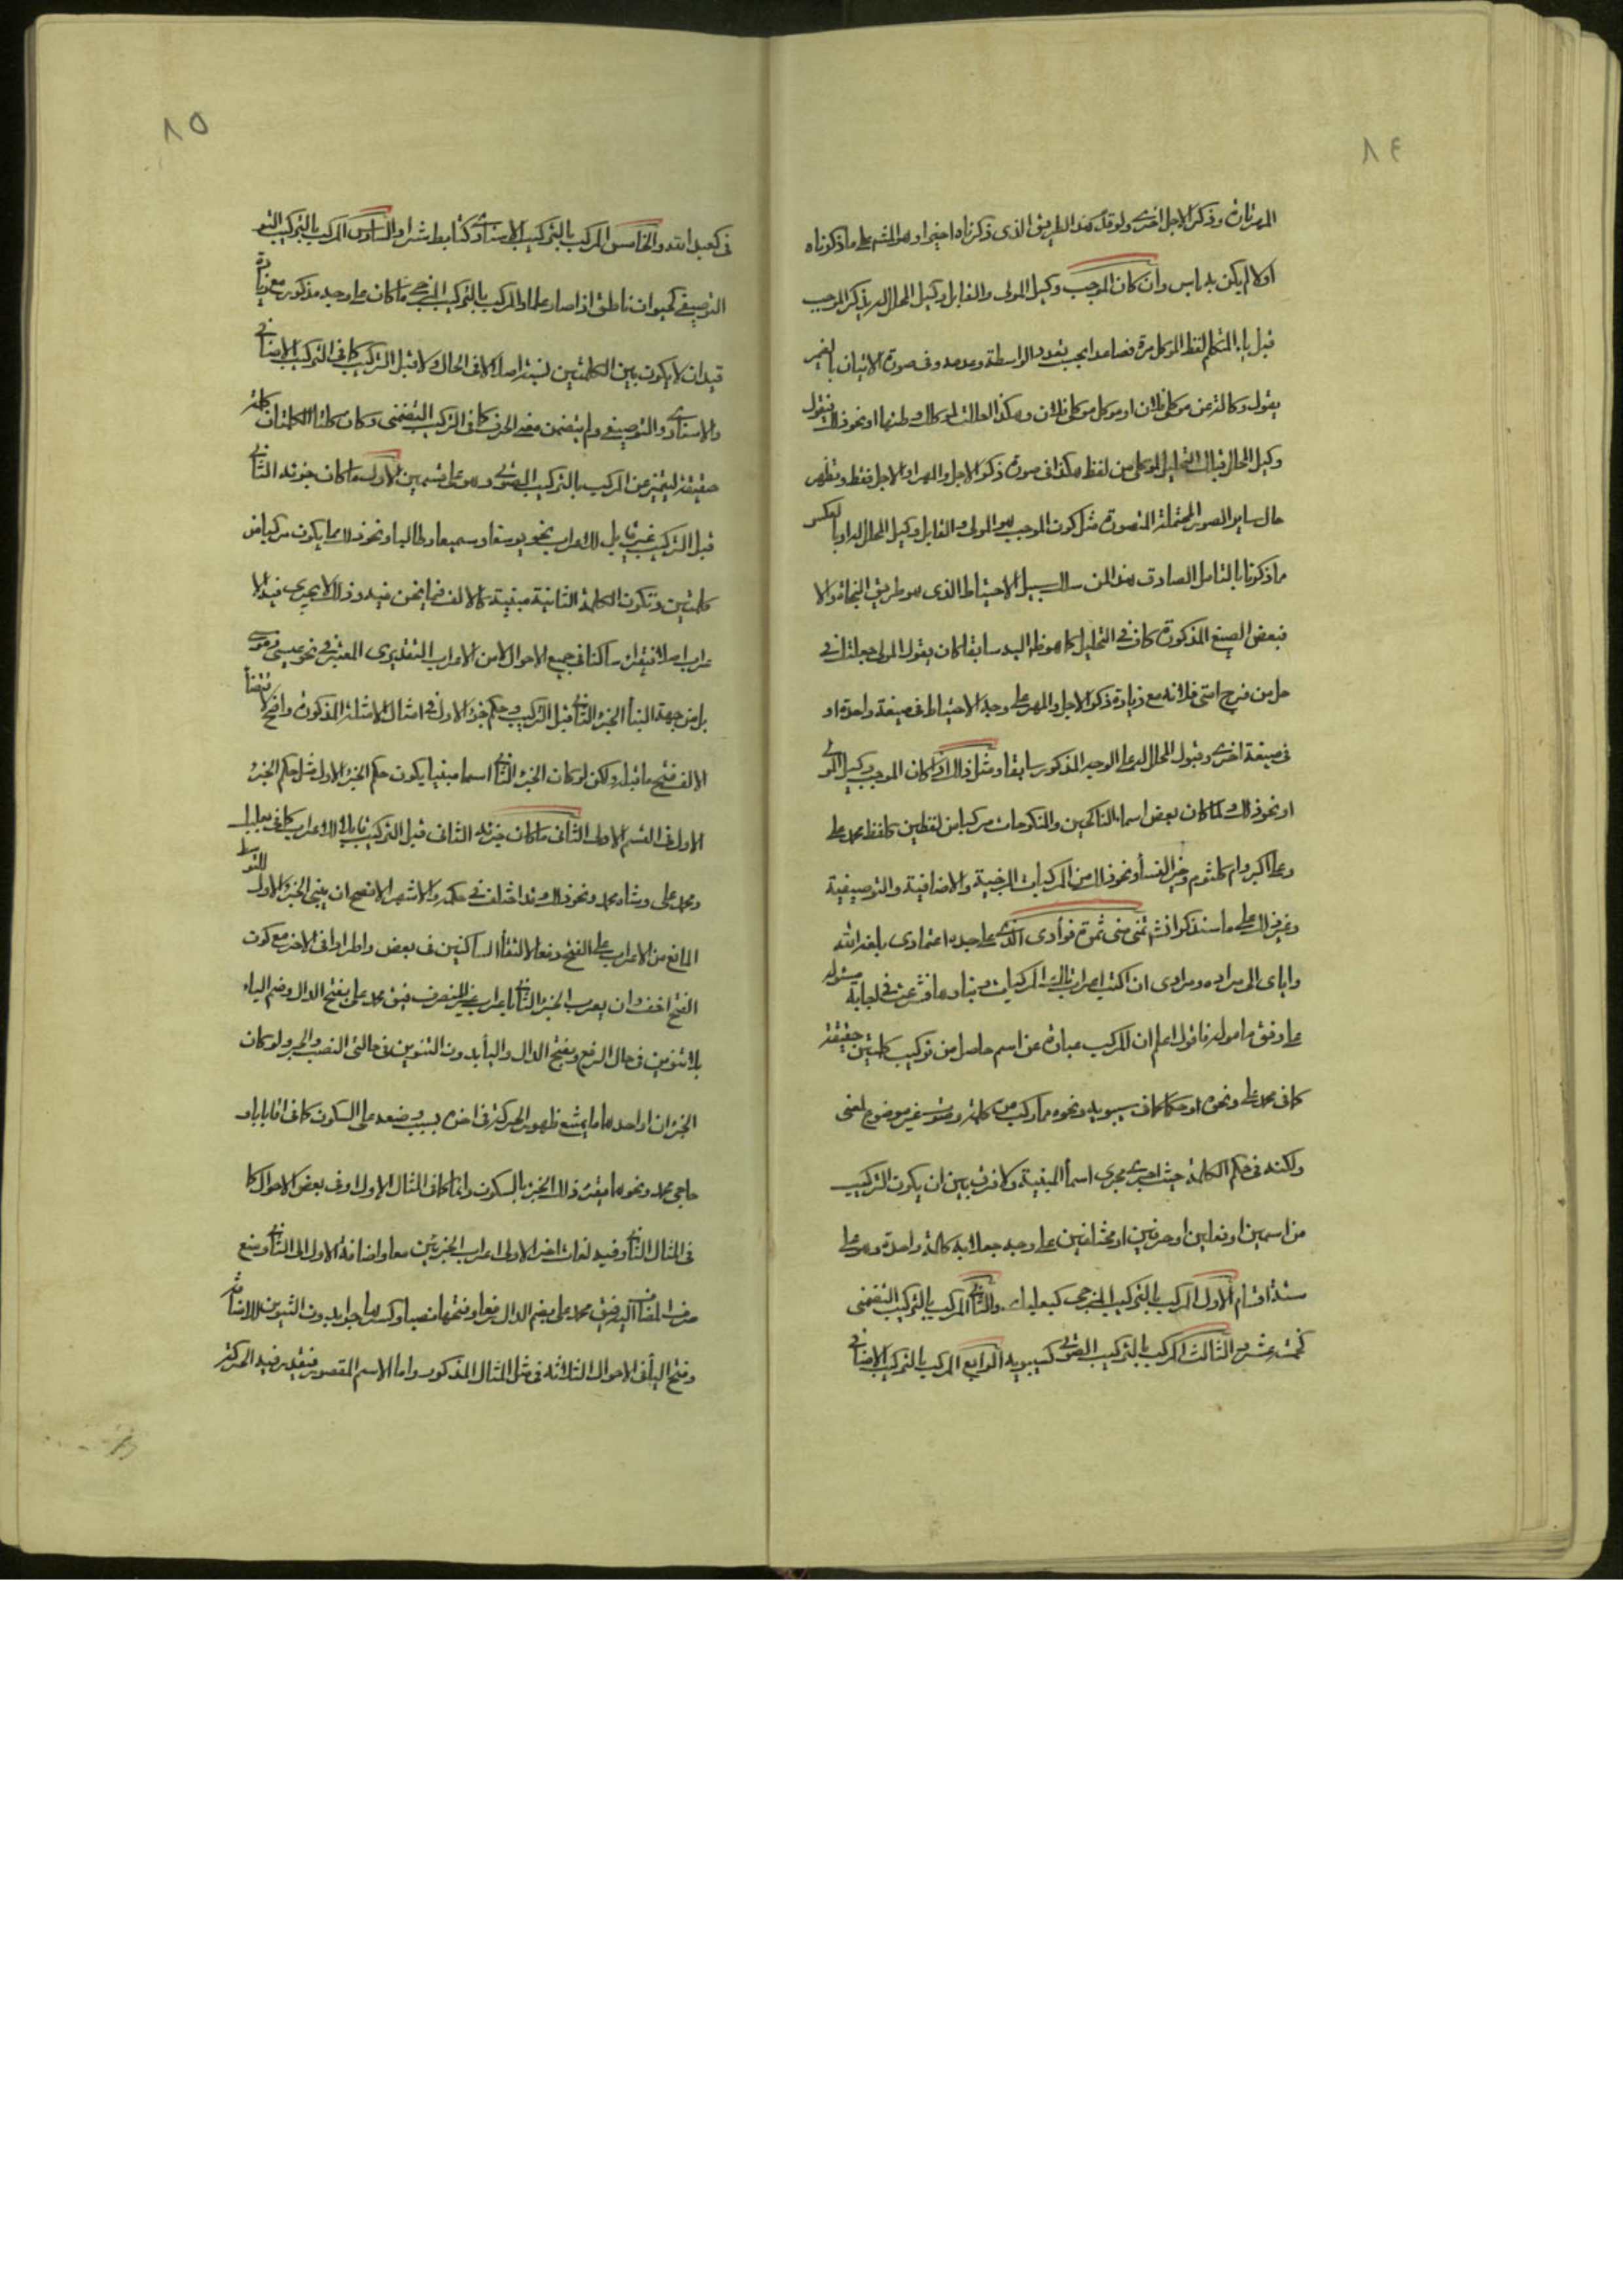 ٨٤
المهر تارة وذكر الاجل اخرى ولو قدم هذا الطريق الذى ذكرناه اخيرا وهو المشهور على ما ذكرناه
اولا لم يكن به باس وان كان الموجب وكيل المولى والقابل وكيل المحلل له يذكر الموجب
قبل ياء المتكلم لفظ الموكل مرة فصاعدا بحسب تعدد الواسطة وعدمه وفى صورة الاتيان بالضمير
يقول وكالة عن موكلى فلان او موكل موكلى فلان وهكذا
وكيل المحلل قبلت التحليل لموكلى من لفظ هكذا فى صورة ذكر الاجل والمهر او الاجل فقط وتظهر
حال ساير الصور المحتملة المتصورة مثل كون الموجب هو المولى والقابل وكيل المحلل له او بالعكس
ما ذكرنا بالتامل الصادق هذا لمن سلك سبيل الاحتياط الذى هو طريق النجاة والا
فبعض الصيغ المذكورة كاف فى التحليل كما هو ظاهر اليه سابقا كان يقول المولى جعلتك فى
حل من فرج امتى فلانه مع زيادة ذكر الاجل والمهر على وجه الاحتياط فى صيغة واحدة او
فى صيغة اخرى وقبول المحلل له على الوجه المذكور سابقا ومثل ذلك اذا كان الموجب وكيل المولى
او نحو ذلك ولما كان بعض اسماء الناكحين والمنكوحات مركبا من لفظين كلفظ محمد على
وعلى اكبر وام كلثوم وخير النسا ونحو ذلك من المركبات المزجية والاضافية والتوصيفية
وغير ذلك على ما سنذكر التمس منى ثمرة فوادى الذى عليه اعتمادى بلغه الله
واياى الى مراده ومرادى ان اكتب اعراب تلك المركبات وبناءها فشرعت فى اجابة مسئوله
على وفق مامولة فاقول اعلم ان المركب عبارة عن اسم حاصل من تركيب كلمتين حقيقة
كما فى محمد على ونحوه او حكما كما فى سيبويه ونحوه مما ركب من كلمة وصوت غير موضوع لمعنى
ولكنه فى حكم الكلمة حيث اجرى مجرى اسماء المبنية ولا فرق بين ان يكون التركيب
من اسمين او فعلين او حرفين او مختلفين على وجه جعلا به كالمة واحدة وهو على
ستة اقسام الاول المركب بالتركيب المزجى كبعلبك والثانى المركب بالتركيب التضمنى
كخمسة عشر والثالث المركب بالتركيب الصوتى كسيبويه الرابع المركب بالتركيب الاضافى
٨٥
فى كعبد الله والخامس المركب بالتركيب الاسنادى كتابط شرا والسادس المركب بالتركيب
التوصيفى كحيوان ناطق اذا صار علما والمركب بالتركيب المزجى ما كان على وجه مذكور مع زيادة
قيد ان لا يكون بين الكلمتين نسبة اصلا لا فى الحال ولا قبل التركيب كما فى التركيب الاضافى
والاسنادى والتوصيفى ولم يتضمن معنى الحرف كما فى التركيب التضمنى وكان كلتا الكلمتان كلمة
حقيقة ليتميز عن المركب بالتركيب الصوتى وهو على قسمين الاول ما كان جزئه الثانى
قبل التركيب غير قابل للاعراب نحو يوسفا وسميعا وطالبا ونحو ذلك مما يكون مركبا من
كلمتين وتكون الكلمة الثانية مبنية كالالف فيما نحن فيه وذلك لا يجرى فيه الا
عراب اصلا فيقرا ساكنا فى جميع الاحوال لا من الاعراب التقديرى المعتبر فى نحو عيسى وموسى
بل من جهة البناء الجزء الثانى قبل التركيب وحكم جزء الاول فى امثال الامثلة المذكورة واضح لاقتضاء
الالف فتح ما قبله ولكن لو كان الجزء الثانى اسما مبنيا يكون حكم الجزء الاول مثل حكم الجزء
الاول فى القسم الاول الثانى ما كان جزئه الثانى قبل التركيب قابلا للاعراب كما فى بعلبك
ومحمد على وشاه محمد ونحو ذلك وقد اختلف فى حكمه والاشهر الافصح ان يبنى الجزء الاول للتوسط
المانع من الاعراب على الفتح دفعا لالتقاء الساكنين فى بعض واطرادا فى الاخر مع كون
الفتح اخف وان يعرب الجزء الثانى باعراب غير المنصرف فيق محمد على بفتح الدال وضم الياء
بلا تنوين فى حال الرفع وبفتح الدال والياء بدون التنوين فى حالتى النصب والجر ولو كان
الجزان او احدهما ما يمتنع ظهور الحركة فى اخره بسبب وضعه على السكون كما فى اقا بابا و
حاجى محمد ونحوهما يقرء ذلك الجزء بالسكون دائما كما فى المثال الاول او فى بعض الاحوال كما
فى المثال الثانى وفيه لغات اخر الاولى اعراب الجزئين معا واضافة الاول الى الثانى ومنع
صرف المضاف اليه فيق محمد على بضم الدال رفعا وفتحها نصبا وكسرها جرا بدون التنوين للاضافة
وفتح الياء فى الاحوال الثلاثة فى مثل المثال المذكور واما الاسم المقصور فيقدر فيه الحركة